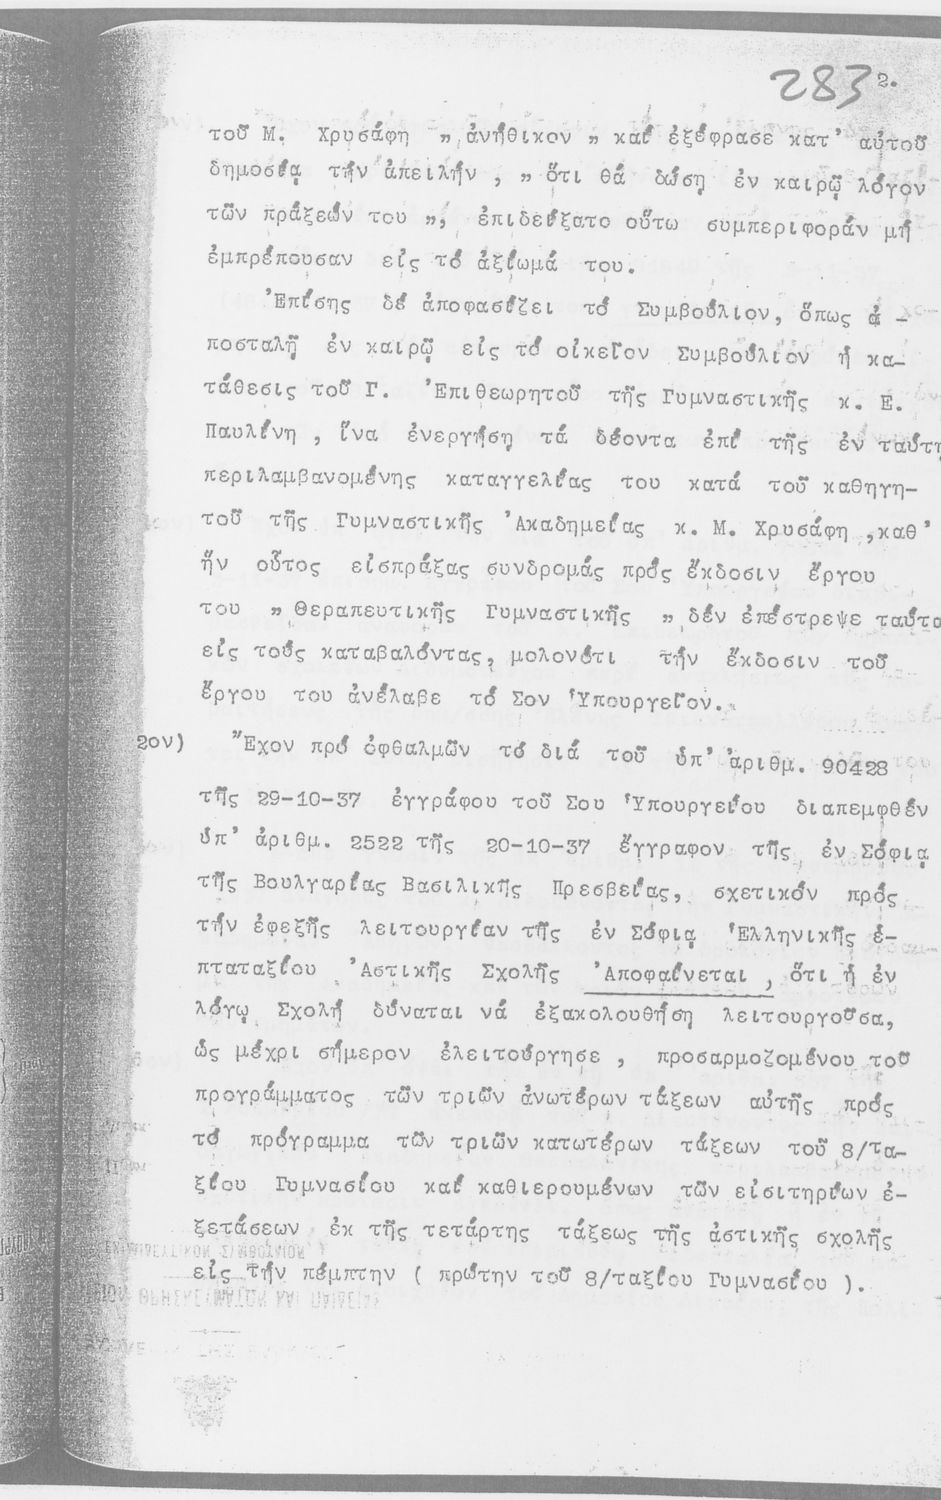 283 2.
τοῦ Μ. Χρυσάφη „ ἀνήθικον „ καί ἐξέφρασε κατ' αὐτοῦ
δημοσίᾳ τήν ἀπειλήν , „ ὅτι θά δώσῃ ἐν καιρῷ λόγον
τῶν πράξεών του „, ἐπιδείξατο οὕτω συμπεριφοράν μή
ἐμπρέπουσαν εἰς τό ἀξίωμά του.
Ἐπίσης δέ ἀποφασίζει τό Συμβούλιον, ὅπως ἀ -
ποσταλῇ ἐν καιρῷ εἰς τό οἰκεῖον Συμβούλιον ἡ κα-
τάθεσις τοῦ Γ. Ἐπιθεωρητοῦ τῆς Γυμναστικῆς κ. Ε.
Παυλίνη , ἵνα ἐνεργήσῃ τά δέοντα ἐπί τῆς ἐν ταύτῃ
περιλαμβανομένης καταγγελίας του κατά τοῦ καθηγη-
τοῦ τῆς Γυμναστικῆς Ἀκαδημείας κ. Μ. Χρυσάφη ,καθ'
ἥν οὗτος εἰσπράξας συνδρομάς πρός ἔκδοσιν ἔργου
του „ Θεραπευτικῆς Γυμναστικῆς „ δέν ἐπέστρεψε ταύτα
εἰς τούς καταβαλόντας, μολονότι τήν ἔκδοσιν τοῦ
ἔργου του ἀνέλαβε τό Σον Ὑπουργεῖον.
2ον) Ἔχον πρό ὀφθαλμῶν τό διά τοῦ ὑπ' ἀριθμ. 90428
τῆς 29-10-37 ἐγγράφου τοῦ Σου Ὑπουργείου διαπεμφθέν
ὑπ' ἀριθμ. 2522 τῆς 20-10-37 ἔγγραφον τῆς ἐν Σόφιᾳ
τῆς Βουλγαρίας Βασιλικῆς Πρεσβείας, σχετικόν πρός
τήν ἐφεξῆς λειτουργίαν τῆς ἐν Σόφιᾳ Ἑλληνικῆς ἑ-
πταταξίου Ἀστικῆς Σχολῆς Ἀποφαίνεται , ὅτι ἡ ἐν
λόγῳ Σχολή δύναται νά ἐξακολουθήσῃ λειτουργοῦσα,
ὡς μέχρι σήμερον ἐλειτούργησε , προσαρμοζομένου τοῦ
προγράμματος τῶν τριῶν ἀνωτέρων τάξεων αὐτῆς πρός
τό πρόγραμμα τῶν τριῶν κατωτέρων τάξεων τοῦ 8/τα-
ξίου Γυμνασίου καί καθιερουμένων τῶν εἰσιτηρίων ἐ-
ξετάσεων ἐκ τῆς τετάρτης τάξεως τῆς ἀστικῆς σχολῆς
εἰς τήν πέμπτην ( πρώτην τοῦ 8/ταξίου Γυμνασίου ).